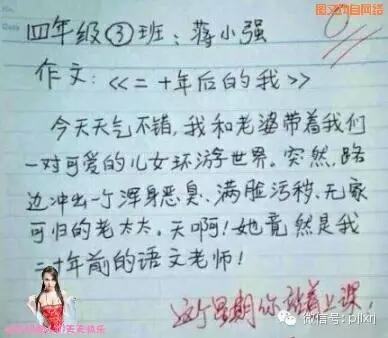 图文源自网络
四年级③班:蒋小强
作文:<<二十年后的我>>
今天天气不错,我和老婆带着我们
一对可爱的儿女环游世界。突然,路
边冲出一个浑身恶臭、满脸污秽、无家
可归的老太太。天啊!她竟然是我
二十年前的语文老师!
这个星期你站着上课,
微信号:pjlxnj